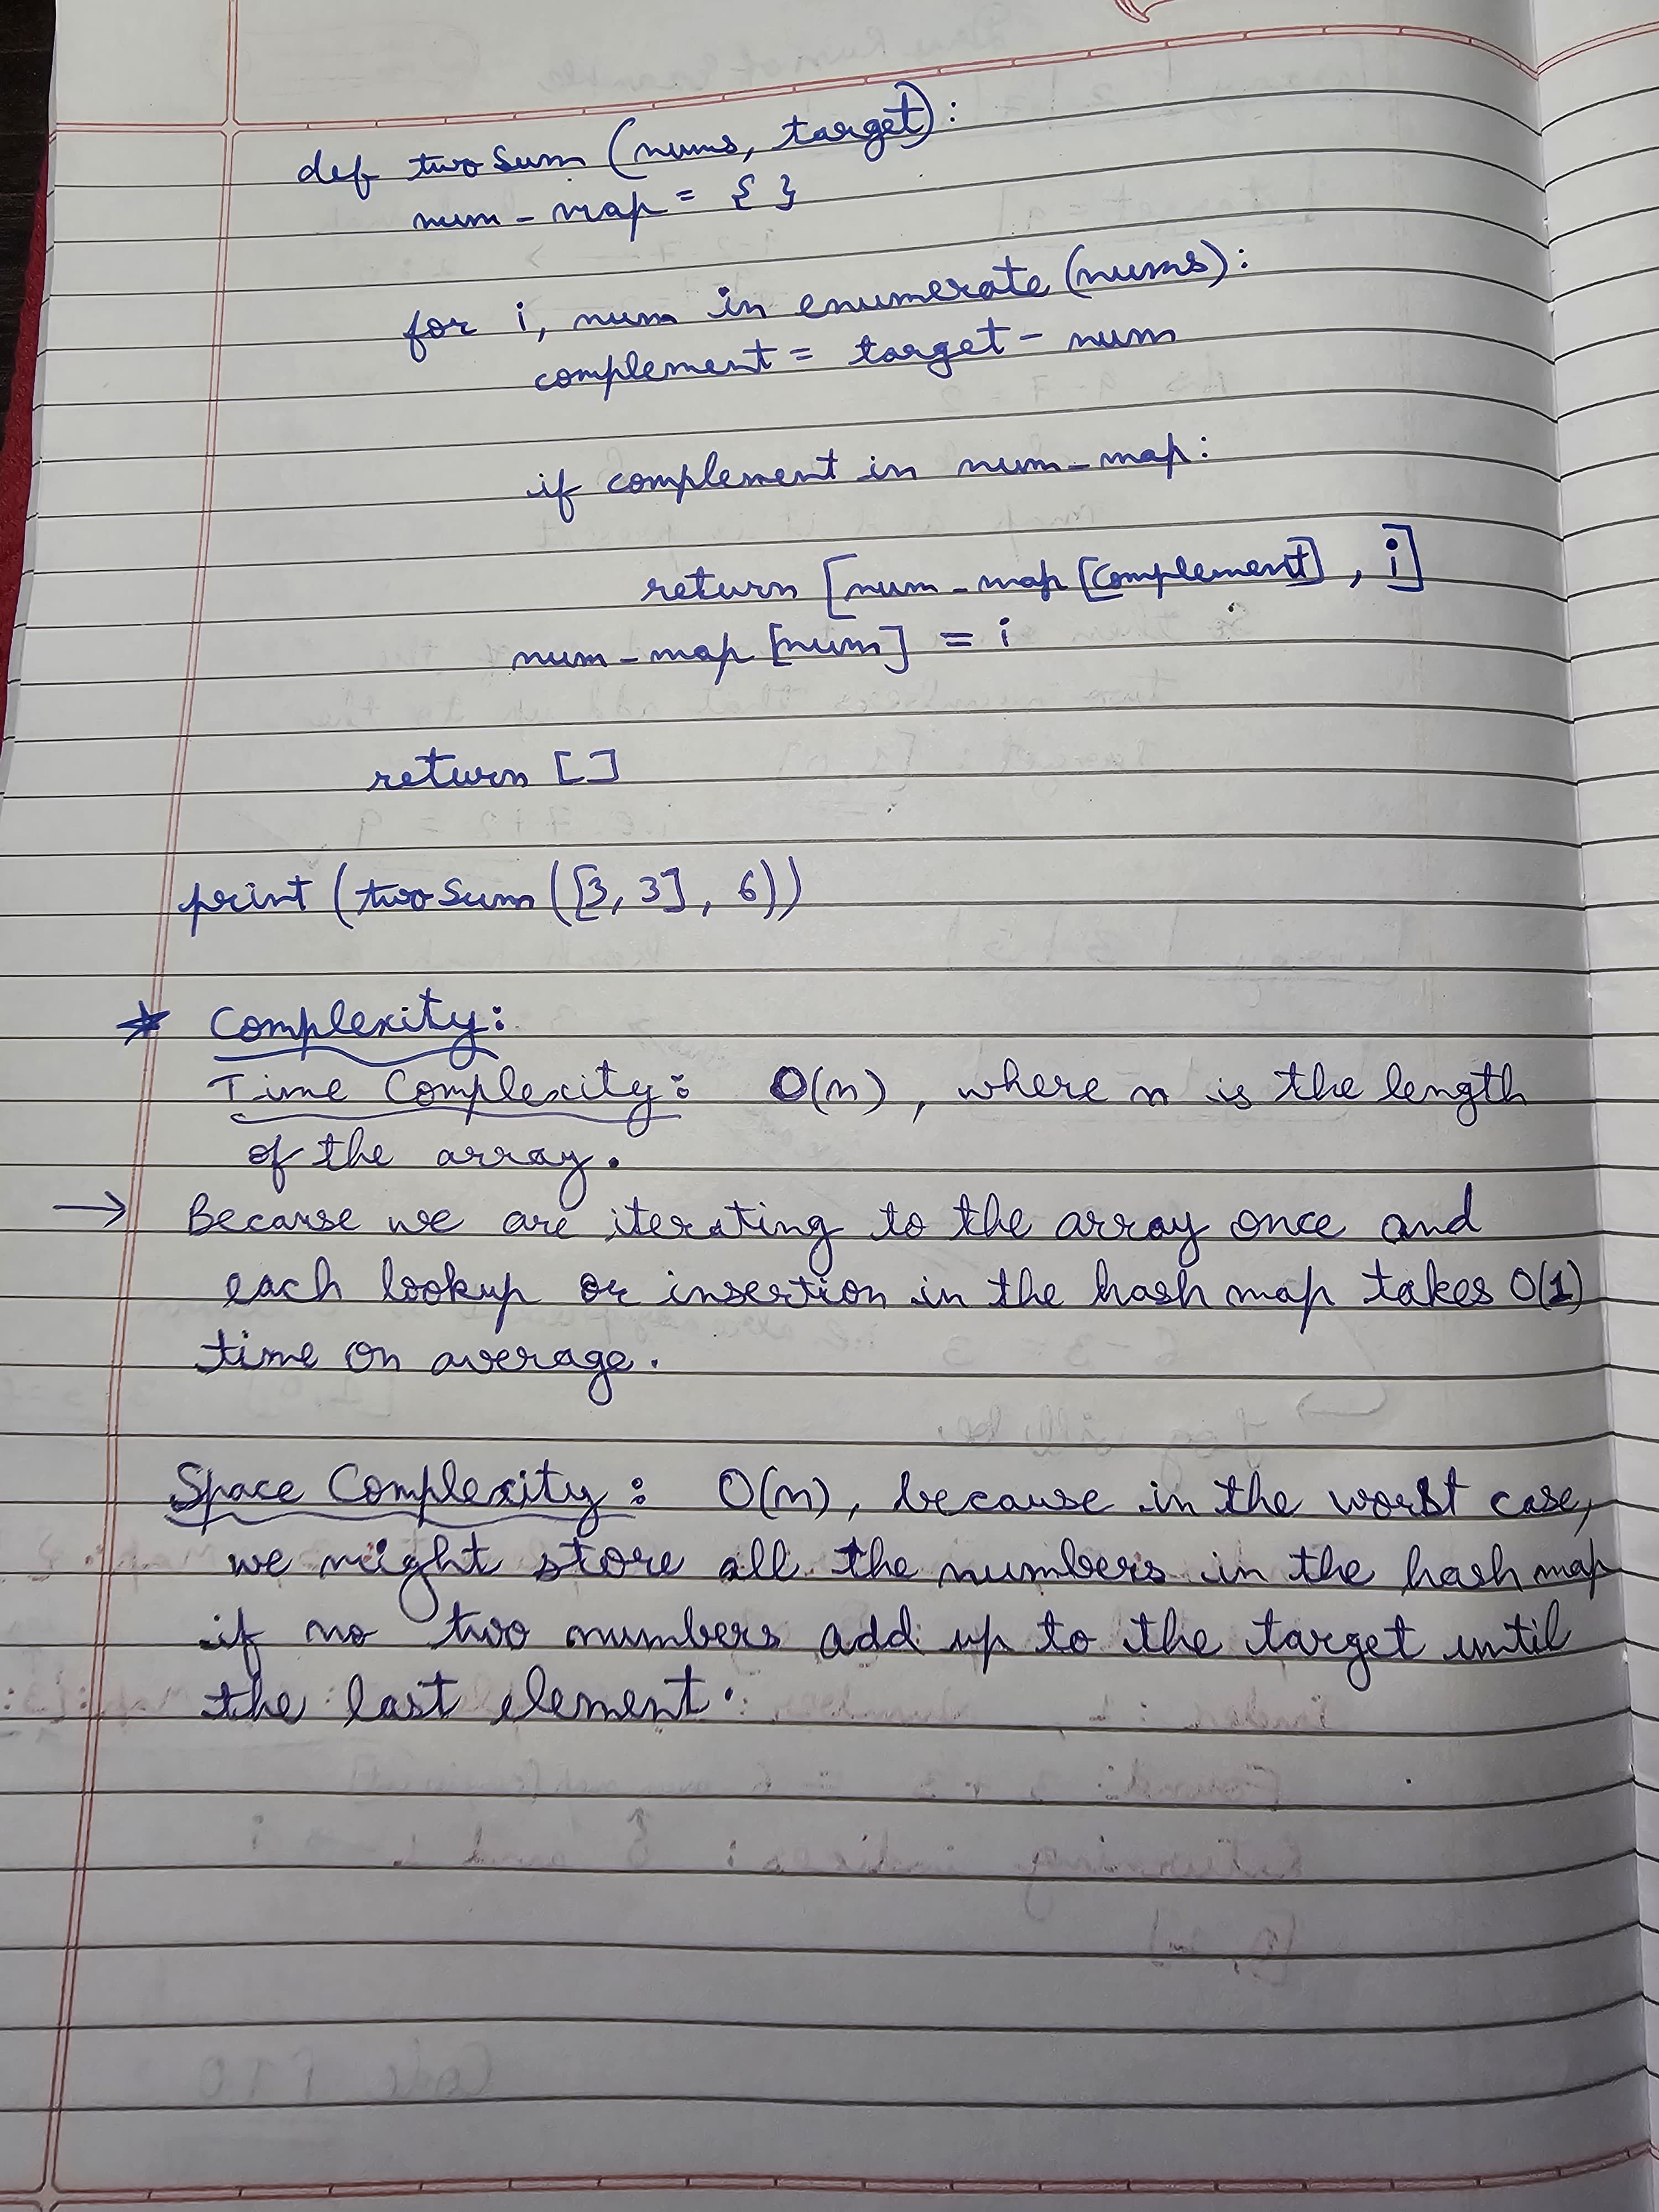 def twoSum (nums, target):
num_map = { }
for i, num in enumerate (nums):
complement = target - num
if complement in num_map:
return [num_map [complement], i]
num_map [num] = i
return []
print (twoSum ([3, 3], 6))
★ Complexity:
Time Complexity: O(n), where n is the length
of the array.
→ Because we are iterating to the array once and
each lookup or insertion in the hash map takes O(1)
time on average.
Space Complexity: O(n), because in the worst case,
we might store all the numbers in the hash map
if no two numbers add up to the target until
the last element.